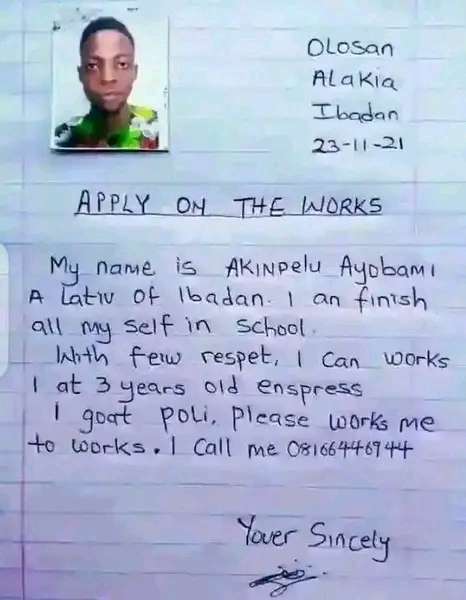 OLOSAN
ALAKIA
Ibadan
23-11-21
APPLY ON THE WORKS
My name is AKINPELU AYOBAMI
A Lativ OF Ibadan. I an finish
all my self in school.
With feiw respet, I can works
I at 3 years old enspress
I goat poli, please works me
to works. I call me 08166446944
Youer Sincely